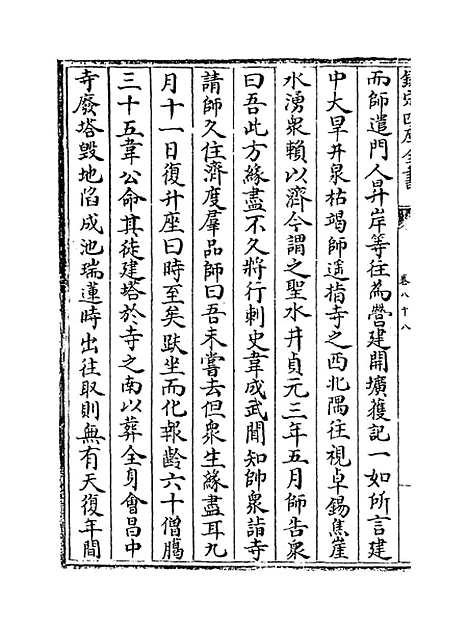 欽定四庫全書
卷八十八
而師遣門人昇岸等往為營建開壙獲記一如所言建
中大旱井泉枯竭師遥指寺之西北隅往視卓錫焦崖
水湧衆賴以濟今謂之聖水井貞元三年五月師告衆
曰吾此方緣盡不久將行刺史韋成武聞知帥衆詣寺
請師久住濟度羣品師曰吾未嘗去但衆生緣盡耳九
月十一日復升座曰時至矣趺坐而化報齡六十僧臈
三十五韋公命其徒建塔於寺之南以葬全身會昌中
寺廢塔毁地陷成池瑞蓮時出往取則無有天復年間